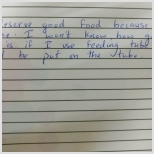 eserve good food because
e. I won't know how g
is if I use feeding tube
t be put on the tube.